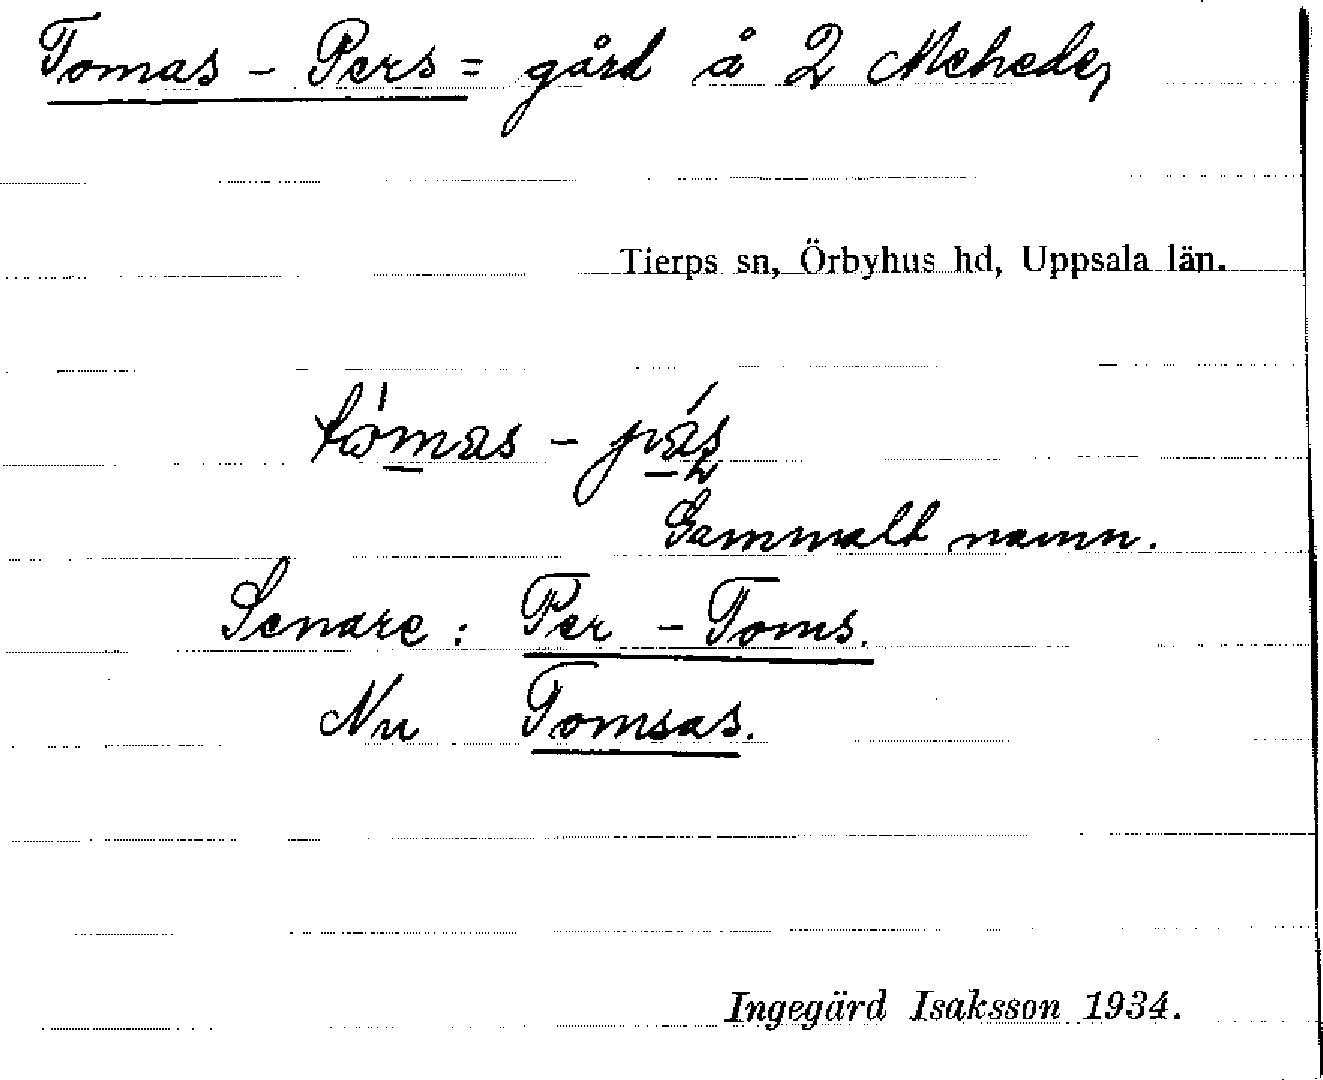 Tomas - Pers = gård å 2 Mehede,
Tierps sn, Örbyhus hd, Uppsala län.
Gammalt namn.
Senare: Per - Toms.
Nu Tomsas.
Ingegärd Isaksson 1934.